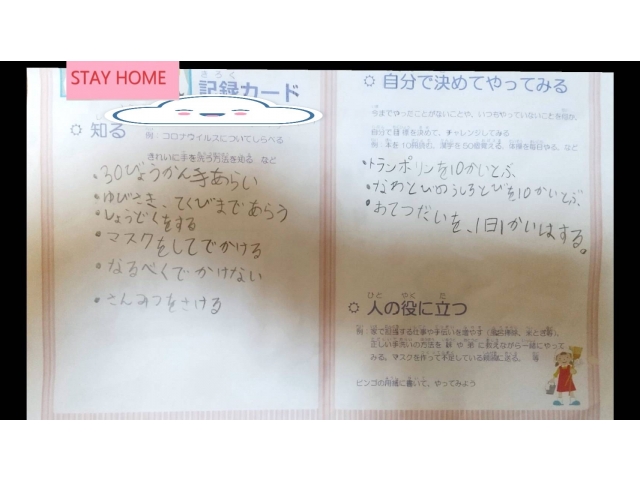 STAY HOME
きろく
記録カード
知る
例：コロナウイルスについてしらべる
きれいに手を洗う方法を知る など
・30びょうかん手あらい
・ゆびさき、てくびまであらう
・しょうどくをする
・マスクをしてでかける
・なるべくでかけない
・さんみつをさける
自分で決めてやってみる
今までやったことがないことや、いつもやっていないことを
自分で目標を決めて、チャレンジしてみる
例：本を10冊読む、漢字を50個覚える、体操を毎日やる、など
・トランポリンを10かいとぶ
・なわとびのうしろとびを10かいとぶ
・おてつだいを、1日1かいはする。
ひと やく た
人の役に立つ
例：家で応援する仕事や手伝いを増やす（風呂掃除、米とぎ等）
正しい手洗いの方法を 妹 や 弟 に教えながら一緒にやって
みる。マスクを作って不足している親戚に送る、 等
ビンゴの用紙に書いて、やってみよう